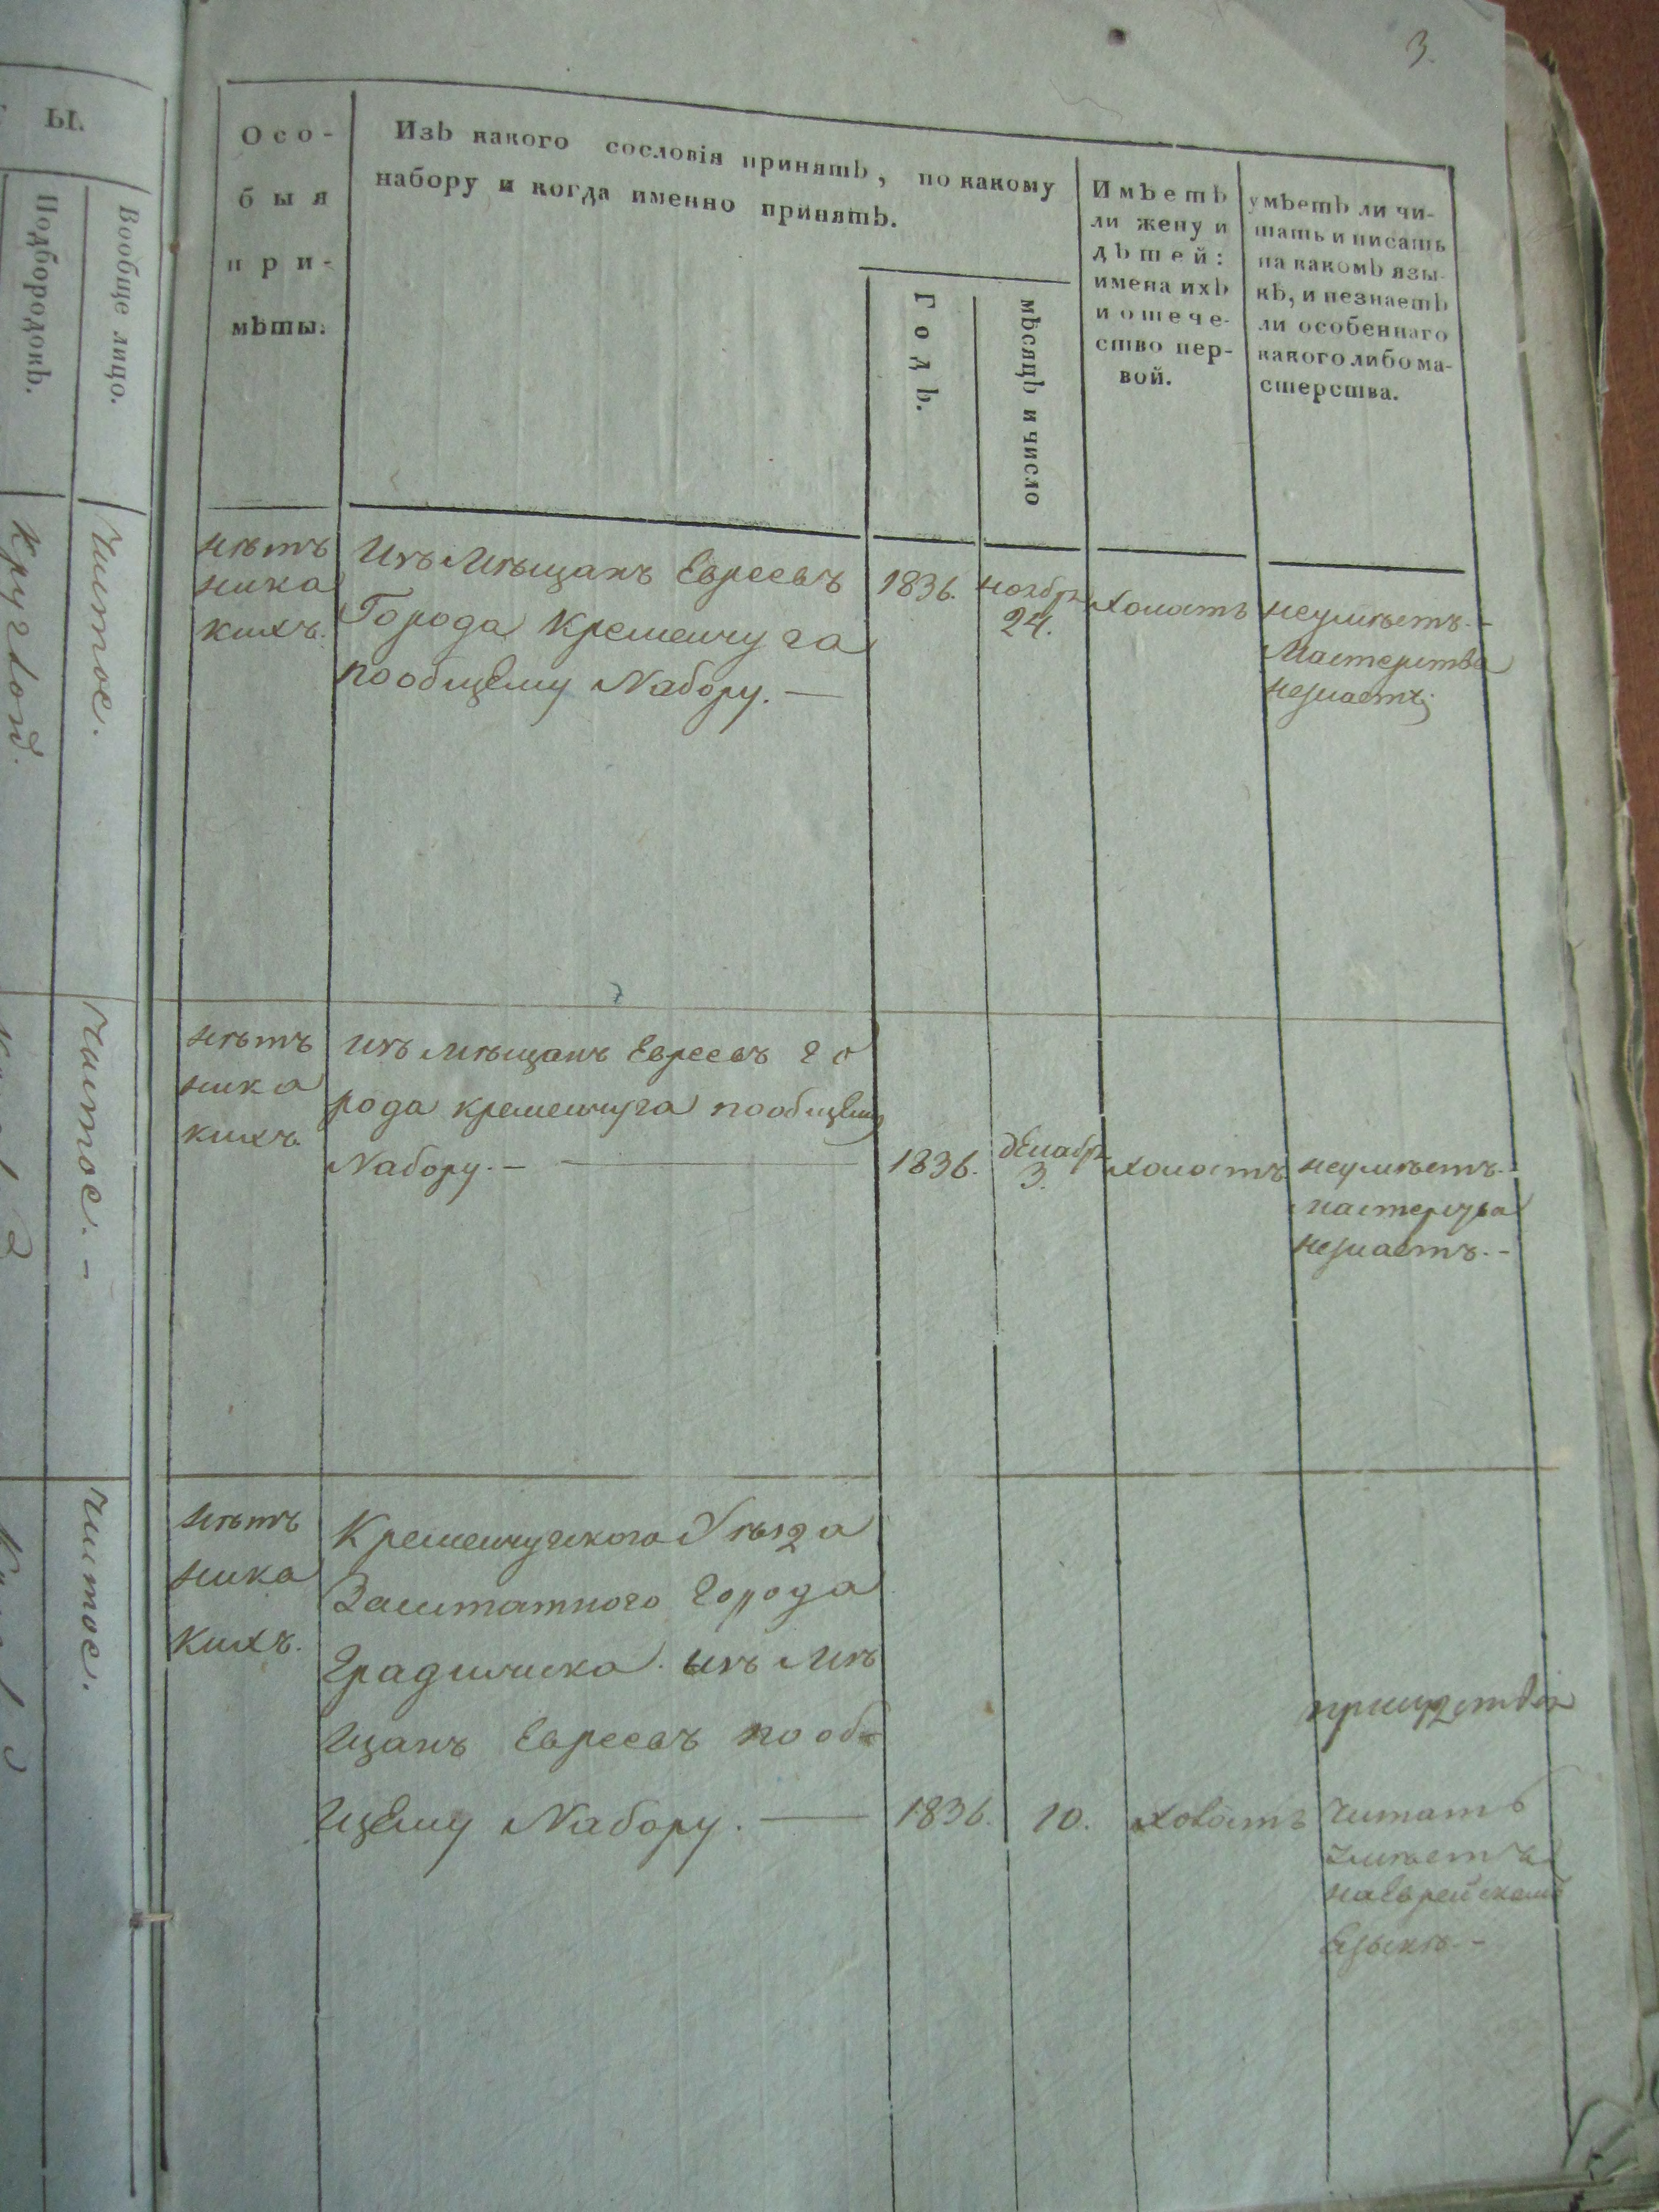 3.
ы.
Подбородокъ.
Вообще лицо.
Осо-
быя
при-
мѣты.
Изъ какого сословія принятъ, по какому
набору и когда именно принятъ.
Годъ.
мѣсяцъ и число
Имѣетъ
ли жену и
дѣтей:
имена ихъ
и отече-
ство пер-
вой.
умѣетъ ли чи-
тать и писать
на какомъ язы-
кѣ, и незнаетъ
ли особеннаго
какого либо ма-
стерства.
круглой.
чистое.
нѣтъ
ника
кихъ.
Изъ Мѣщанъ Евреевъ
Города Кременчуга
пообщему Набору. —
1836.
ноябр.
24.
холостъ
неумѣетъ. -
Мастерства
незнаетъ;
чистое. -
нѣтъ
ника
кихъ.
изъ мѣщанъ Евреевъ го
рода кременчуга пообщему
Набору. — —
1836.
декабр.
3.
холостъ
неумѣетъ. -
мастерства
незнаетъ. -
чистое.
нѣтъ
ника
кихъ.
Кременчугскаго Уѣзда
Заштатнаго города
Градижска изъ мѣ
щанъ Евреевъ пооб
щему Набору. —
1836.
10.
холостъ
Читать
умѣетъ
наеврейскомъ
Языкѣ. -